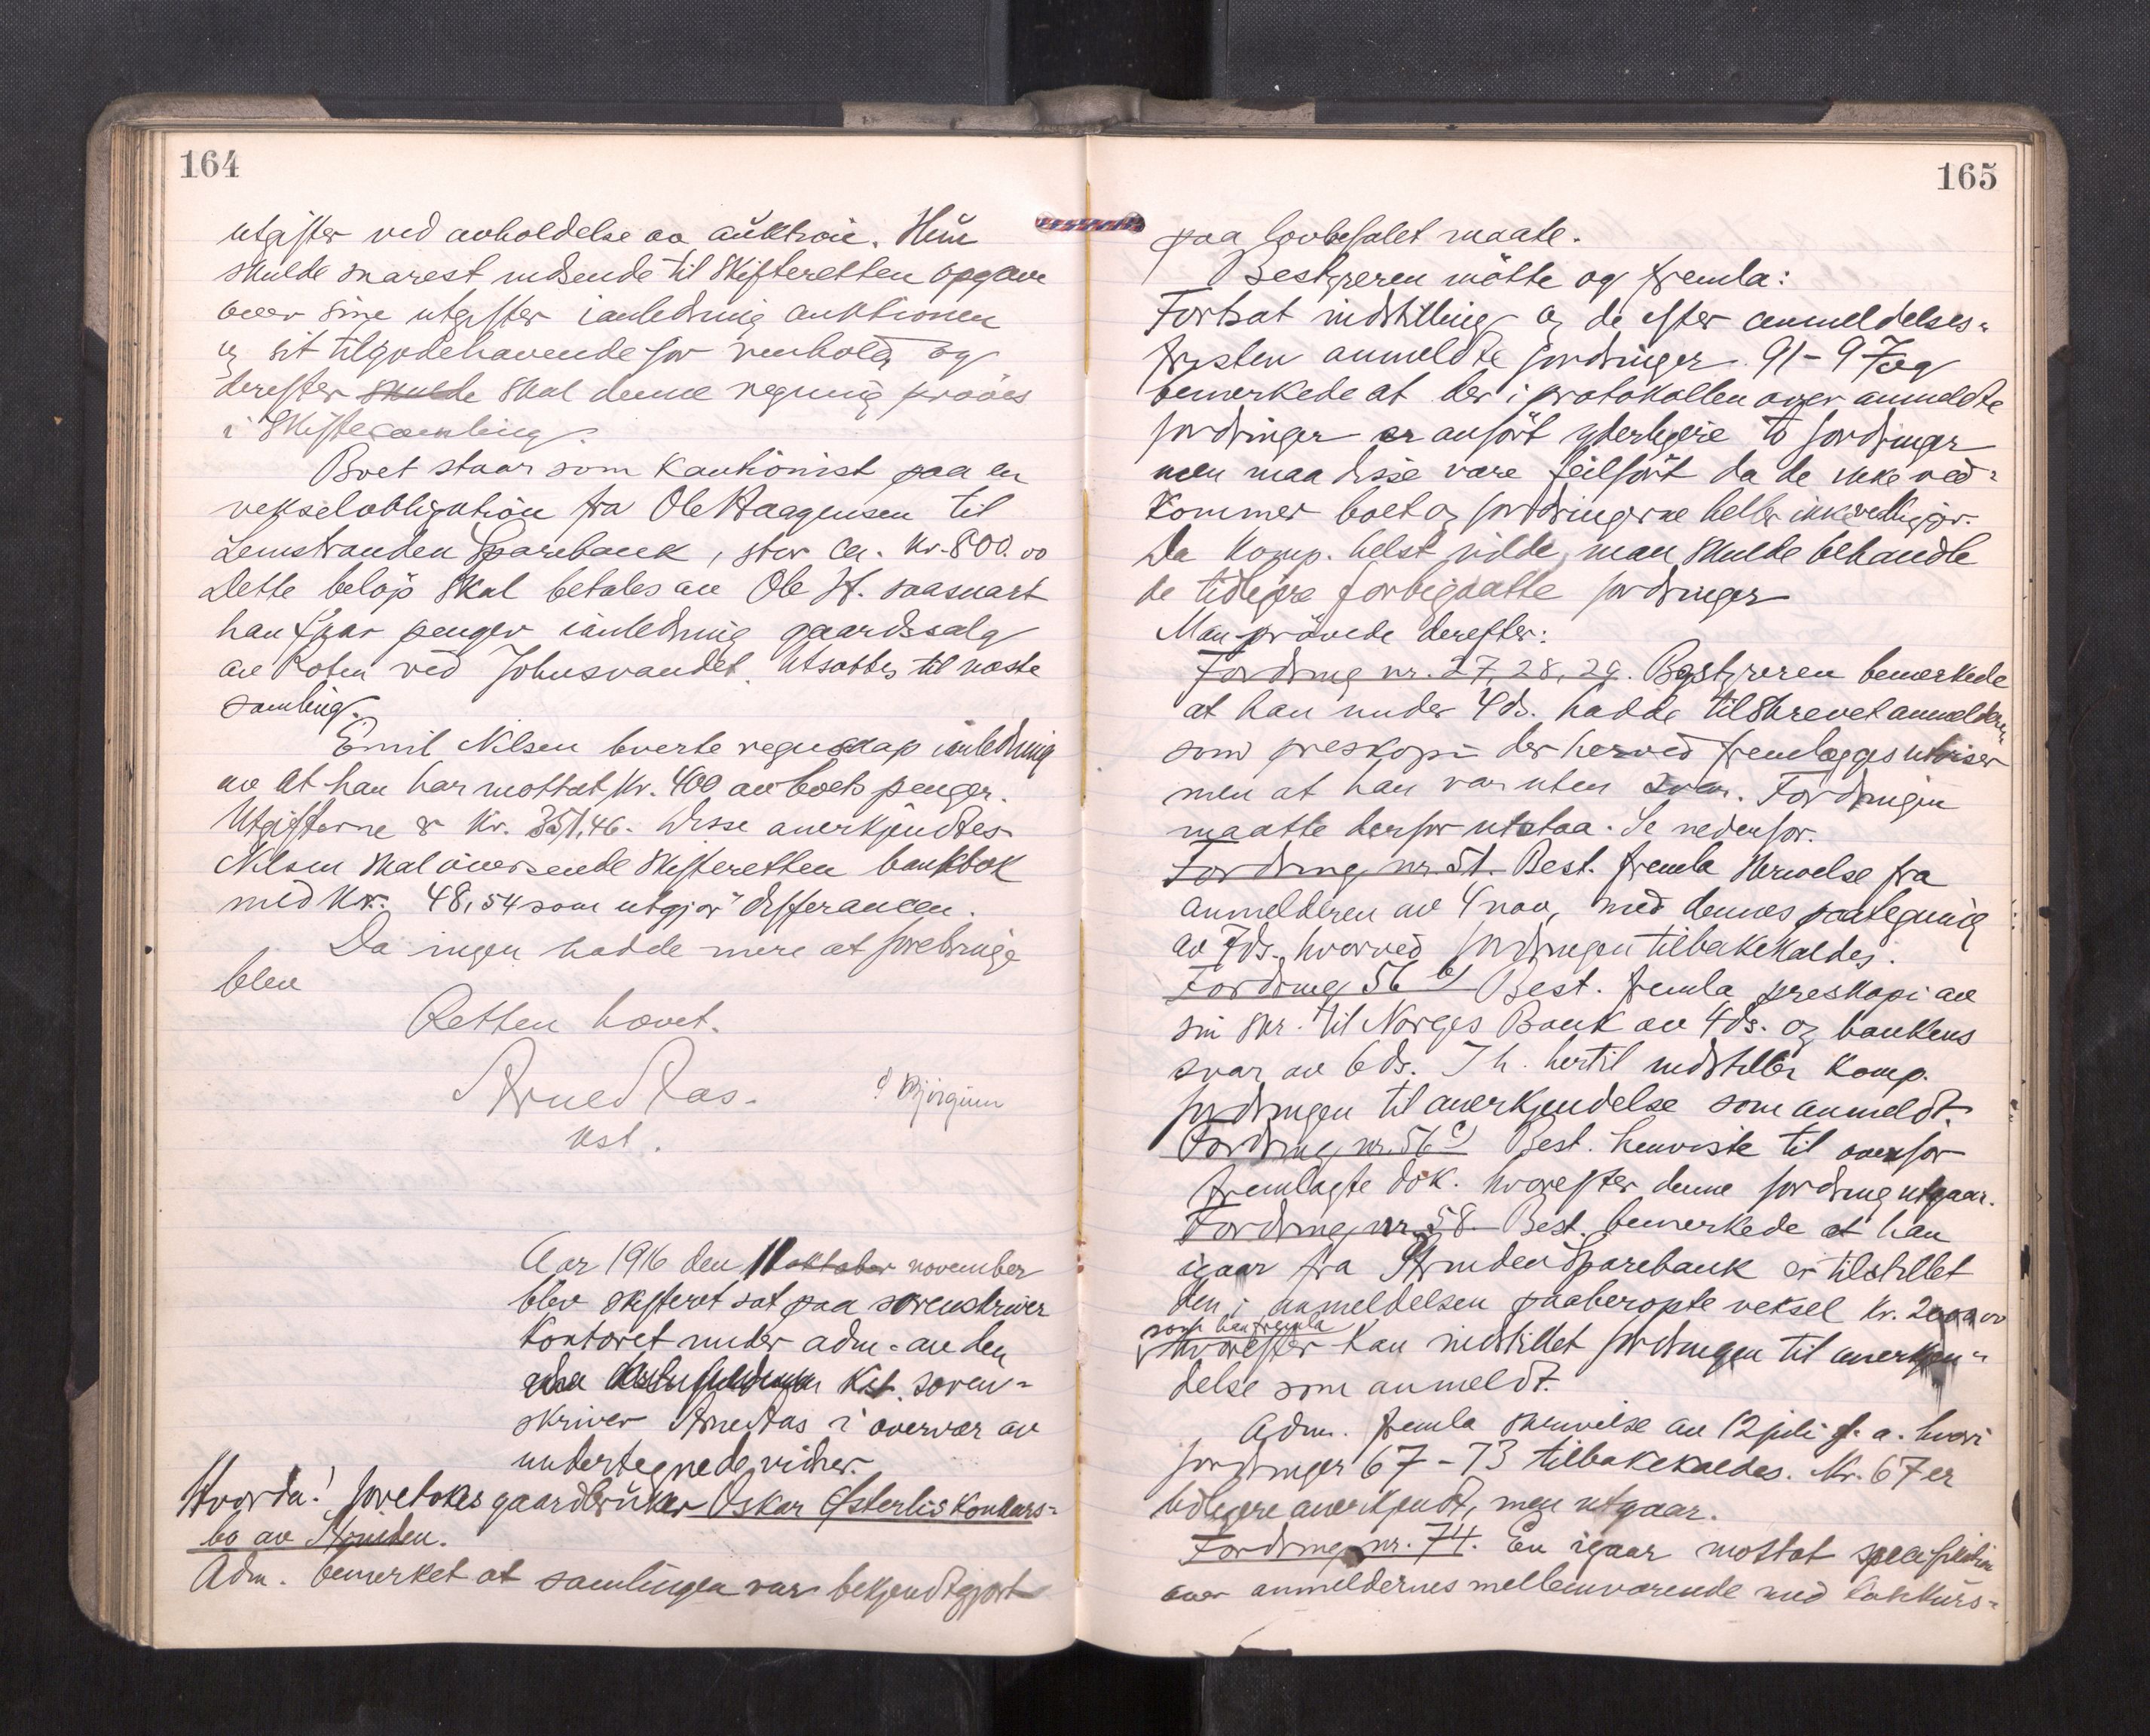 164
utgifter ved avholdelse av auktion. Hun
skulde snarest indsende til Skifteretten opgave
over sine utgifter i anledning auktionen
og sit tilgodehavende for renhold og
derefter skulde skal denne regning prøves
i Skiftesamling.
Boet staar som kautionist paa en
vekselobligation fra Ole Haagensen til
Lenstranden Sparebank, stor ca. kr. 800.00
Dette beløp skal betales av Ole H. saasnart
han faar penger i anledning gaardssalg
av Roten ved Johnsvandet. Utsattes til næste
samling.
Emil Nilsen leverte regnskap i anledning
av at han har mottat kr. 400 av boets penger.
Utgifterne er kr. 351,46. Disse anerkjendtes
Nilsen skal oversende Skifteretten bankbok
med kr. 48,54 som utgjør differancen.
Da ingen hadde mere at frembringe
blev
Retten hævet.
Arne Aas.
kst.
Aar 1916 den 11 oktober november
blev skifteret sat paa sorenskriver
kontoret under adm. av den
kst. soren-
skriver Arne Aas i overvær av
undertegnede vidner.
Hvorda! foretokes gaardbruker Oskar Østerlis konkurs-
bo av Strinden.
Adm. bemerket at samlingen var bekjendtgjort
165
paa lovbefalet maate.
Bestyreren møtte og fremla:
Fortsat indstilling og de efter anmeldelses-
fristen anmeldte fordringer 91-97 og
bemerkede at der i protokollen over anmeldte
fordringer er anført yderligere to fordringer
men maa disse være feilført da de ikke ved-
kommer boet og fordringerne heller ikke vedlegger.
Da komp. helst vilde, man skulde behandle
de tidligere forbigaatte fordringer
Man prøvede derefter:
Fordring nr. 27, 28, 29. Bestyreren bemerkede
at han under 4 ds. hadde tilskrevet anmelderen
som preskopi der herved fremlægges utviser
men at han var uten svar. Fordringen
maatte derfor utstaa. Se nedenfor.
Fordring nr. 51. Best. fremla skrivelse fra
anmelderen av 4 nov, med dennes paategning
av 7 ds. hvorved fordringen tilbakekaldes.
Fordring 56 b) Best. fremla preskopi av
sin skr. til Norges Bank av 4 ds. og bankens
svar av 6 ds. I h. hertil indstiller komp.
fordringen til anerkjendelse som anmeldt.
Fordring nr. 56 c) Best. henviste til ovenfor
fremlagte dok. hvorefter denne fordring utgaar.
Fordring nr. 58. Best. bemerkede at han
igaar fra Strinden Sparebank er tilstillet
den i anmeldelsen paaberopte veksel kr. 2000.00
som han fremla
hvorefter han indstillet fordringen til anerkjen-
delse som anmeldt.
Adm. fremla skrivelse av 12 juli d. a. hvori
fordringer 67-73 tilbakekaldes. Nr. 67 er
tidligere anerkjendt, men utgaar.
Fordring nr. 74. En igaar mottat specifikation
over anmeldernes mellemværende med konkurs-